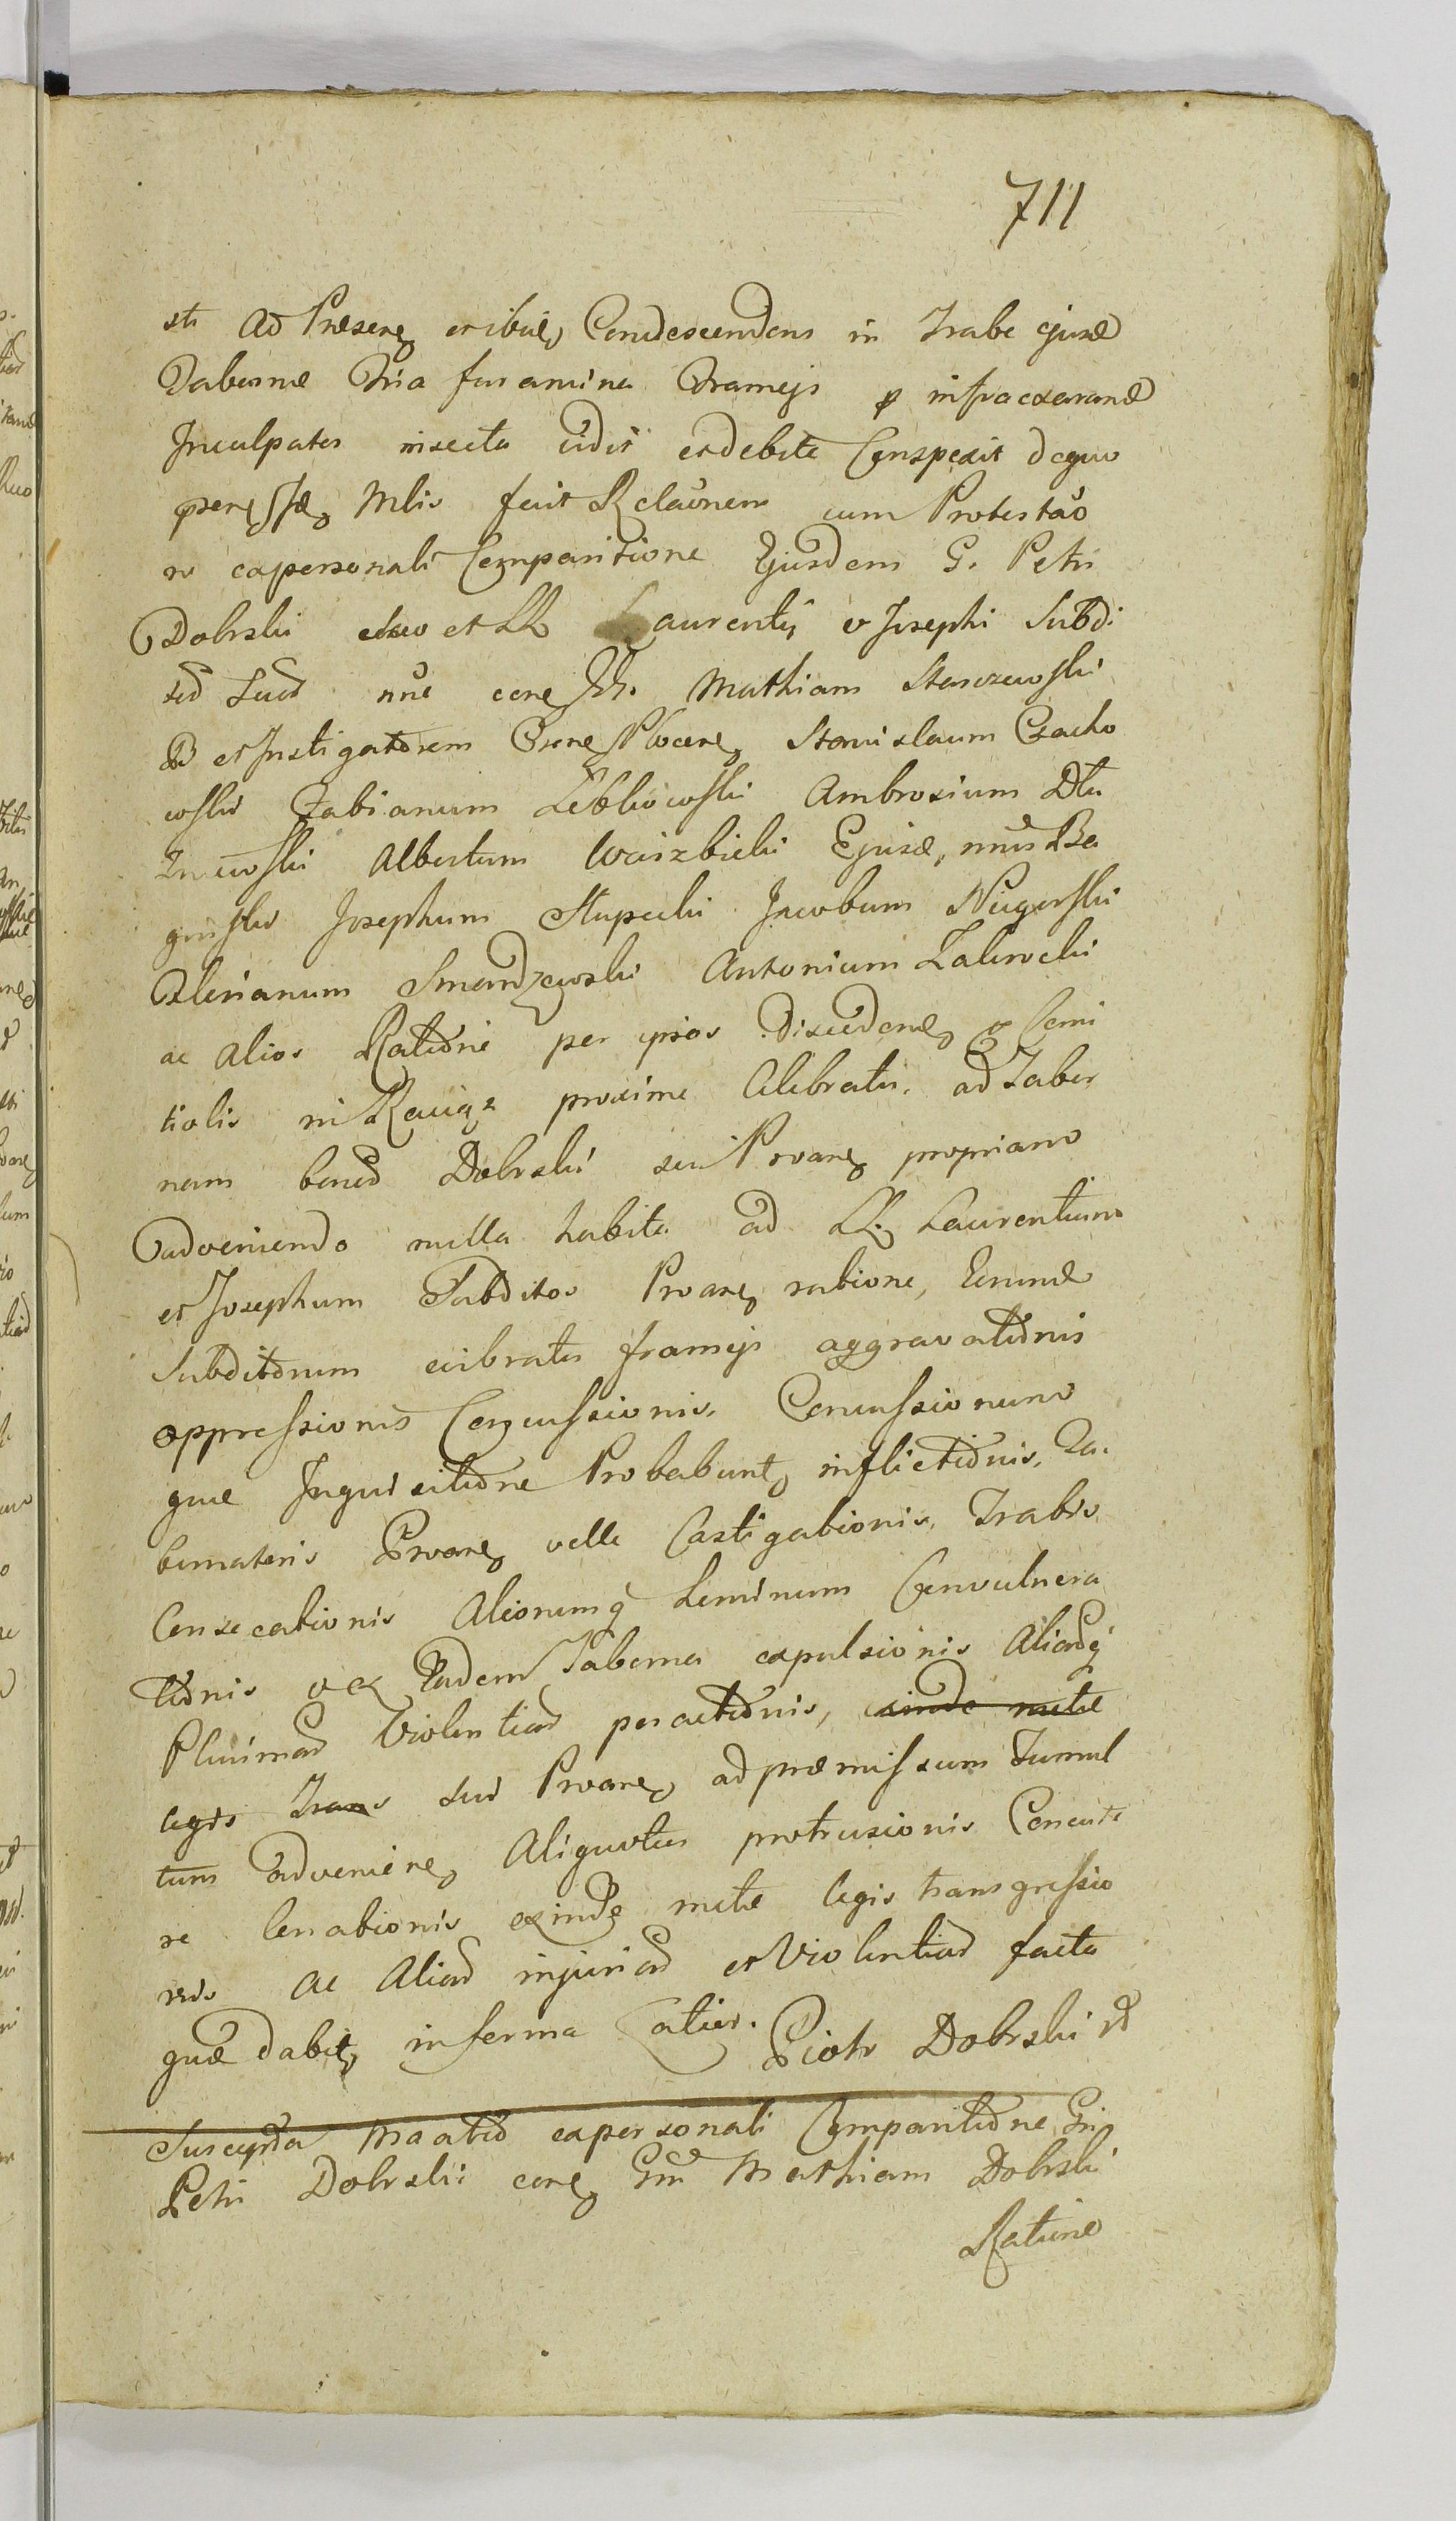 711
sti ad Praesen eribile Condescendens in Trabe ejusd
Tabernae Tria foramina Frameis p infraexarand
Inculpatos insecta vidit et debite Conspexit de quo
Mlis fecit Relaōnem cum Protestaō
ne ex personali Comparitione Ejusdem G. Petri
Dobrski suo et LL Laurentij & Josephi Subdi
tor Suor nōe con Mathiam Starczewski
B et Instigatorem Stanislaum Czacho
wski Fabianum Ambrosium Dłu
zniewski Albertum Wierzbicki Ejusd,
ginski Josephum Słupecki Jacobum Nieganski
Florianum Smardzewski Antonium Zakrocki
ac alios Ratione per ipsos Discedend Comi
tiolis in Raciąz proxime Celebratis. ad Taber
nam bonor Dobrski seu Proran propriam
adveniendo nulla habita ad LL Laurentium
et Josephum Subditos Proran ratione, Eorund
Subditorum vibratis frameis aggravationis
oppressionis Concussionis. Concussionum
que Inquisitione Probabunt, inflictionis. Ta
bernatoris Proran velle Castigationis, Trabis
Consecationis Aliorumq Liminum Convulnera
tionis & ex Eadem Taberna expulsionis Aliarq
Plurimar Violentiar peractionis, exinde mulctae
legis Trans sui Proran ad praemissum Tumul
tum advenien Aliquoties protrusionis Concute
re Conationis exinde mulctae legis transgressio
nis ac Aliar injuriar et Violentiar facta
que dabit in forma Latius. Piotr Dobrski
Suscepta Maatio ex personali Comparitione Gsi
Petri Dobrski con Gsum Mathiam Dobrski
Ratione